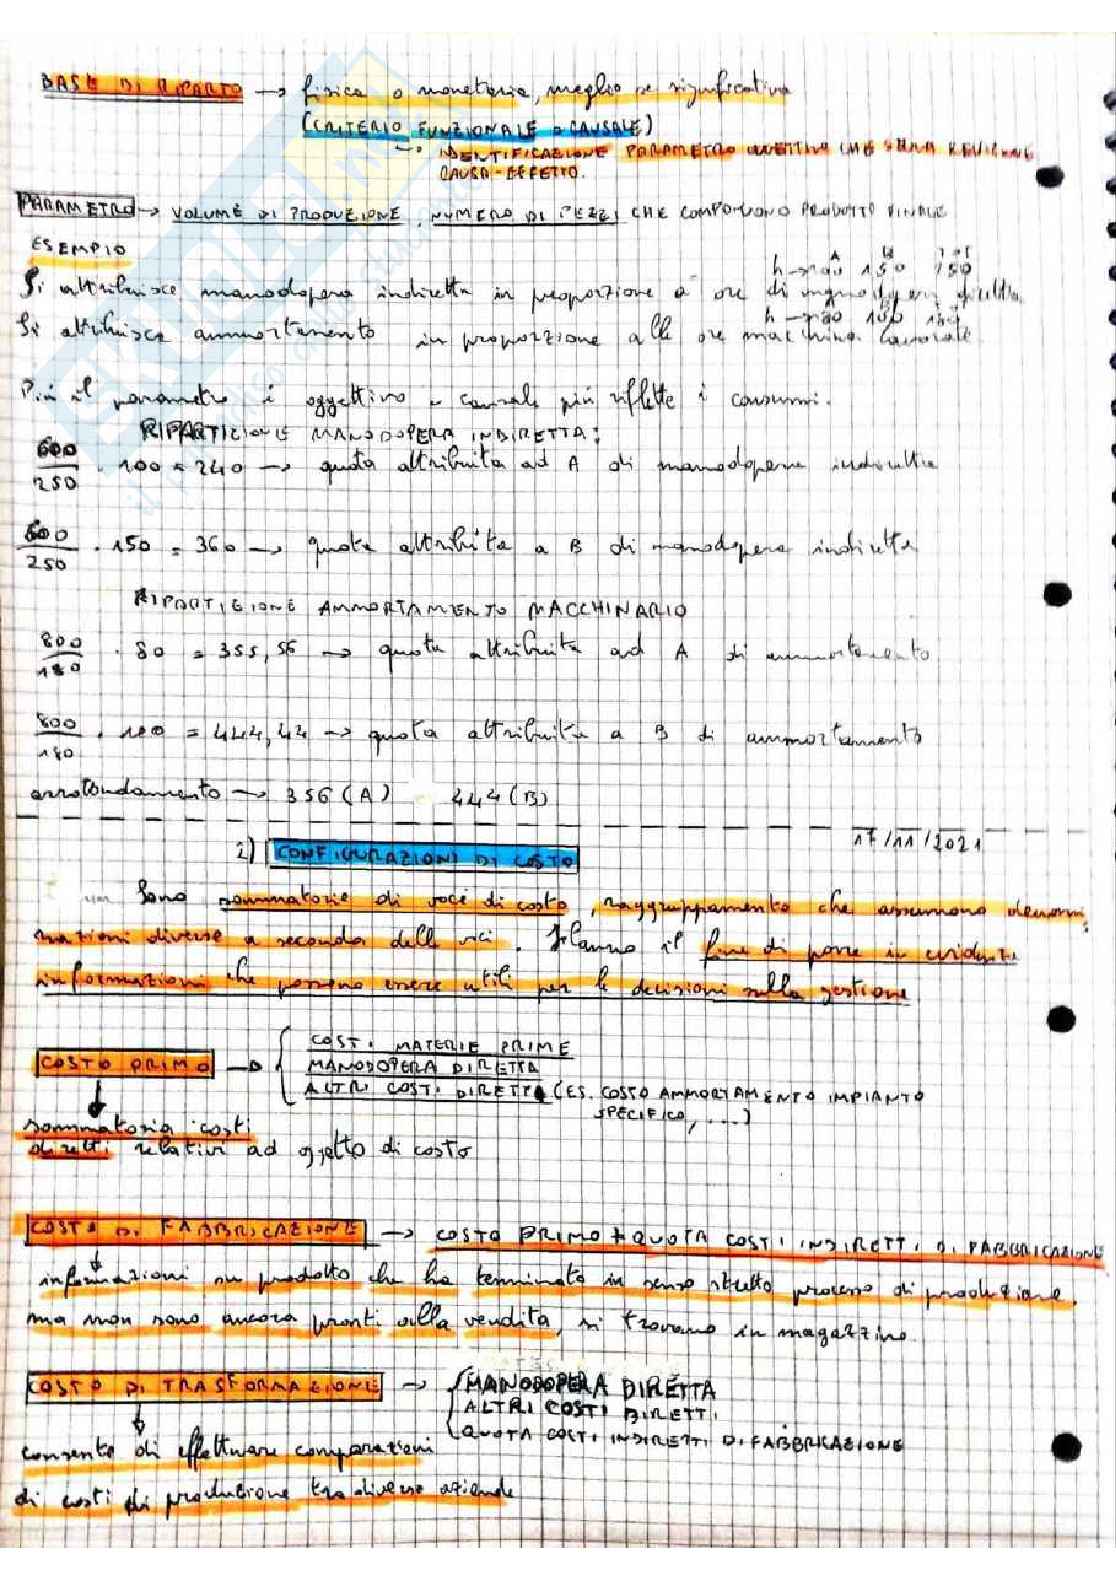 BASE DI RIPARTO → fisica o monetaria, meglio se significativa
(CRITERIO FUNZIONALE o CAUSALE)
→ IDENTIFICAZIONE PARAMETRO OGGETTIVO CHE
CAUSA-EFFETTO.
PARAMETRO → VOLUME DI PRODUZIONE, NUMERO DI PEZZI CHE COMPONGONO PRODOTTO FINALE
ESEMPIO
A B TOT
h → 100 150 250
Si attribuisce manodopera indiretta in proporzione a ore di manodopera diretta
h → 80 100 180
Si attribuisce ammortamento in proporzione alle ore macchina lavorate
Più il parametro è oggettivo e causale più riflette i consumi.
RIPARTIZIONE MANODOPERA INDIRETTA:
600/250 · 100 = 240 → quota attribuita ad A di manodopera indiretta
600/250 · 150 = 360 → quota attribuita a B di manodopera indiretta
RIPARTIZIONE AMMORTAMENTO MACCHINARIO
800/180 · 80 = 355,56 → quota attribuita ad A di ammortamento
800/180 · 100 = 444,44 → quota attribuita a B di ammortamento
arrotondamento → 356 (A) 444 (B)
17/11/2021
2) CONFIGURAZIONI DI COSTO
Sono sommatorie di voci di costo, raggruppamento che assumono denomi
nazioni diverse a seconda delle voci. Hanno il fine di porre in evidenza
informazioni che possono essere utili per le decisioni sulla gestione
COSTO PRIMO → { COSTI MATERIE PRIME
MANODOPERA DIRETTA
ALTRI COSTI DIRETTI (ES. COSTO AMMORTAMENTO IMPIANTO
SPECIFICO, ...)
sommatoria costi
diretti relativi ad oggetto di costo
COSTO DI FABBRICAZIONE → COSTO PRIMO + QUOTA COSTI INDIRETTI DI FABBRICAZIONE
informazioni su prodotto che ha terminato in senso stretto processo di produzione,
ma non sono ancora pronti alla vendita, si trovano in magazzino.
COSTO DI TRASFORMAZIONE → { MANODOPERA DIRETTA
ALTRI COSTI DIRETTI
QUOTA COSTI INDIRETTI DI FABBRICAZIONE
consente di effettuare comparazioni
di costi di produzione tra diverse aziende